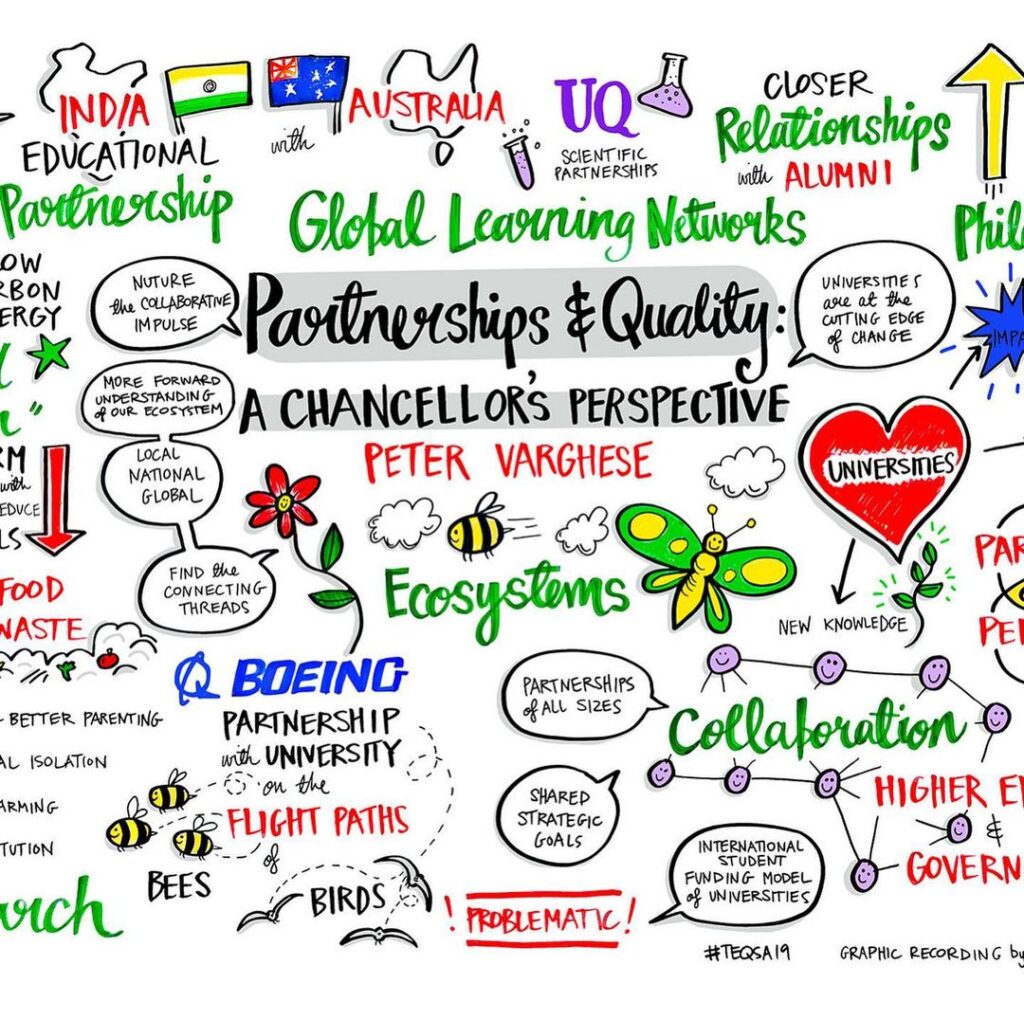 INDIA
EDUCATIONAL
Partnership
with
AUSTRALIA
UQ
SCIENTIFIC
PARTNERSHIPS
CLOSER
Relationships
with ALUMNI
Global Learning Networks
Phil
OW
RBON
ERGY
NUTURE
the COLLABORATIVE
IMPULSE
Partnerships & Quality:
A CHANCELLOR'S PERSPECTIVE
PETER VARGHESE
UNIVERSITIES
are at the
CUTTING EDGE
of CHANGE
IMPA
MORE FORWARD
UNDERSTANDING
of OUR ECOSYSTEM
LOCAL
NATIONAL
GLOBAL
FIND the
CONNECTING
THREADS
RM
with
EDUCE
LS
FOOD
WASTE
UNIVERSITIES
NEW KNOWLEDGE
PAR
PE
Ecosystems
BOEING
PARTNERSHIP
with UNIVERSITY
on the
FLIGHT PATHS
of
BEES
BIRDS
- BETTER PARENTING
AL ISOLATION
ARMING
TUTION
arch
PARTNERSHIPS
of ALL SIZES
Collaboration
SHARED
STRATEGIC
GOALS
HIGHER E
&
GOVERN
INTERNATIONAL
STUDENT
FUNDING MODEL
of UNIVERSITIES
! PROBLEMATIC !
#TEQSA19
GRAPHIC RECORDING by